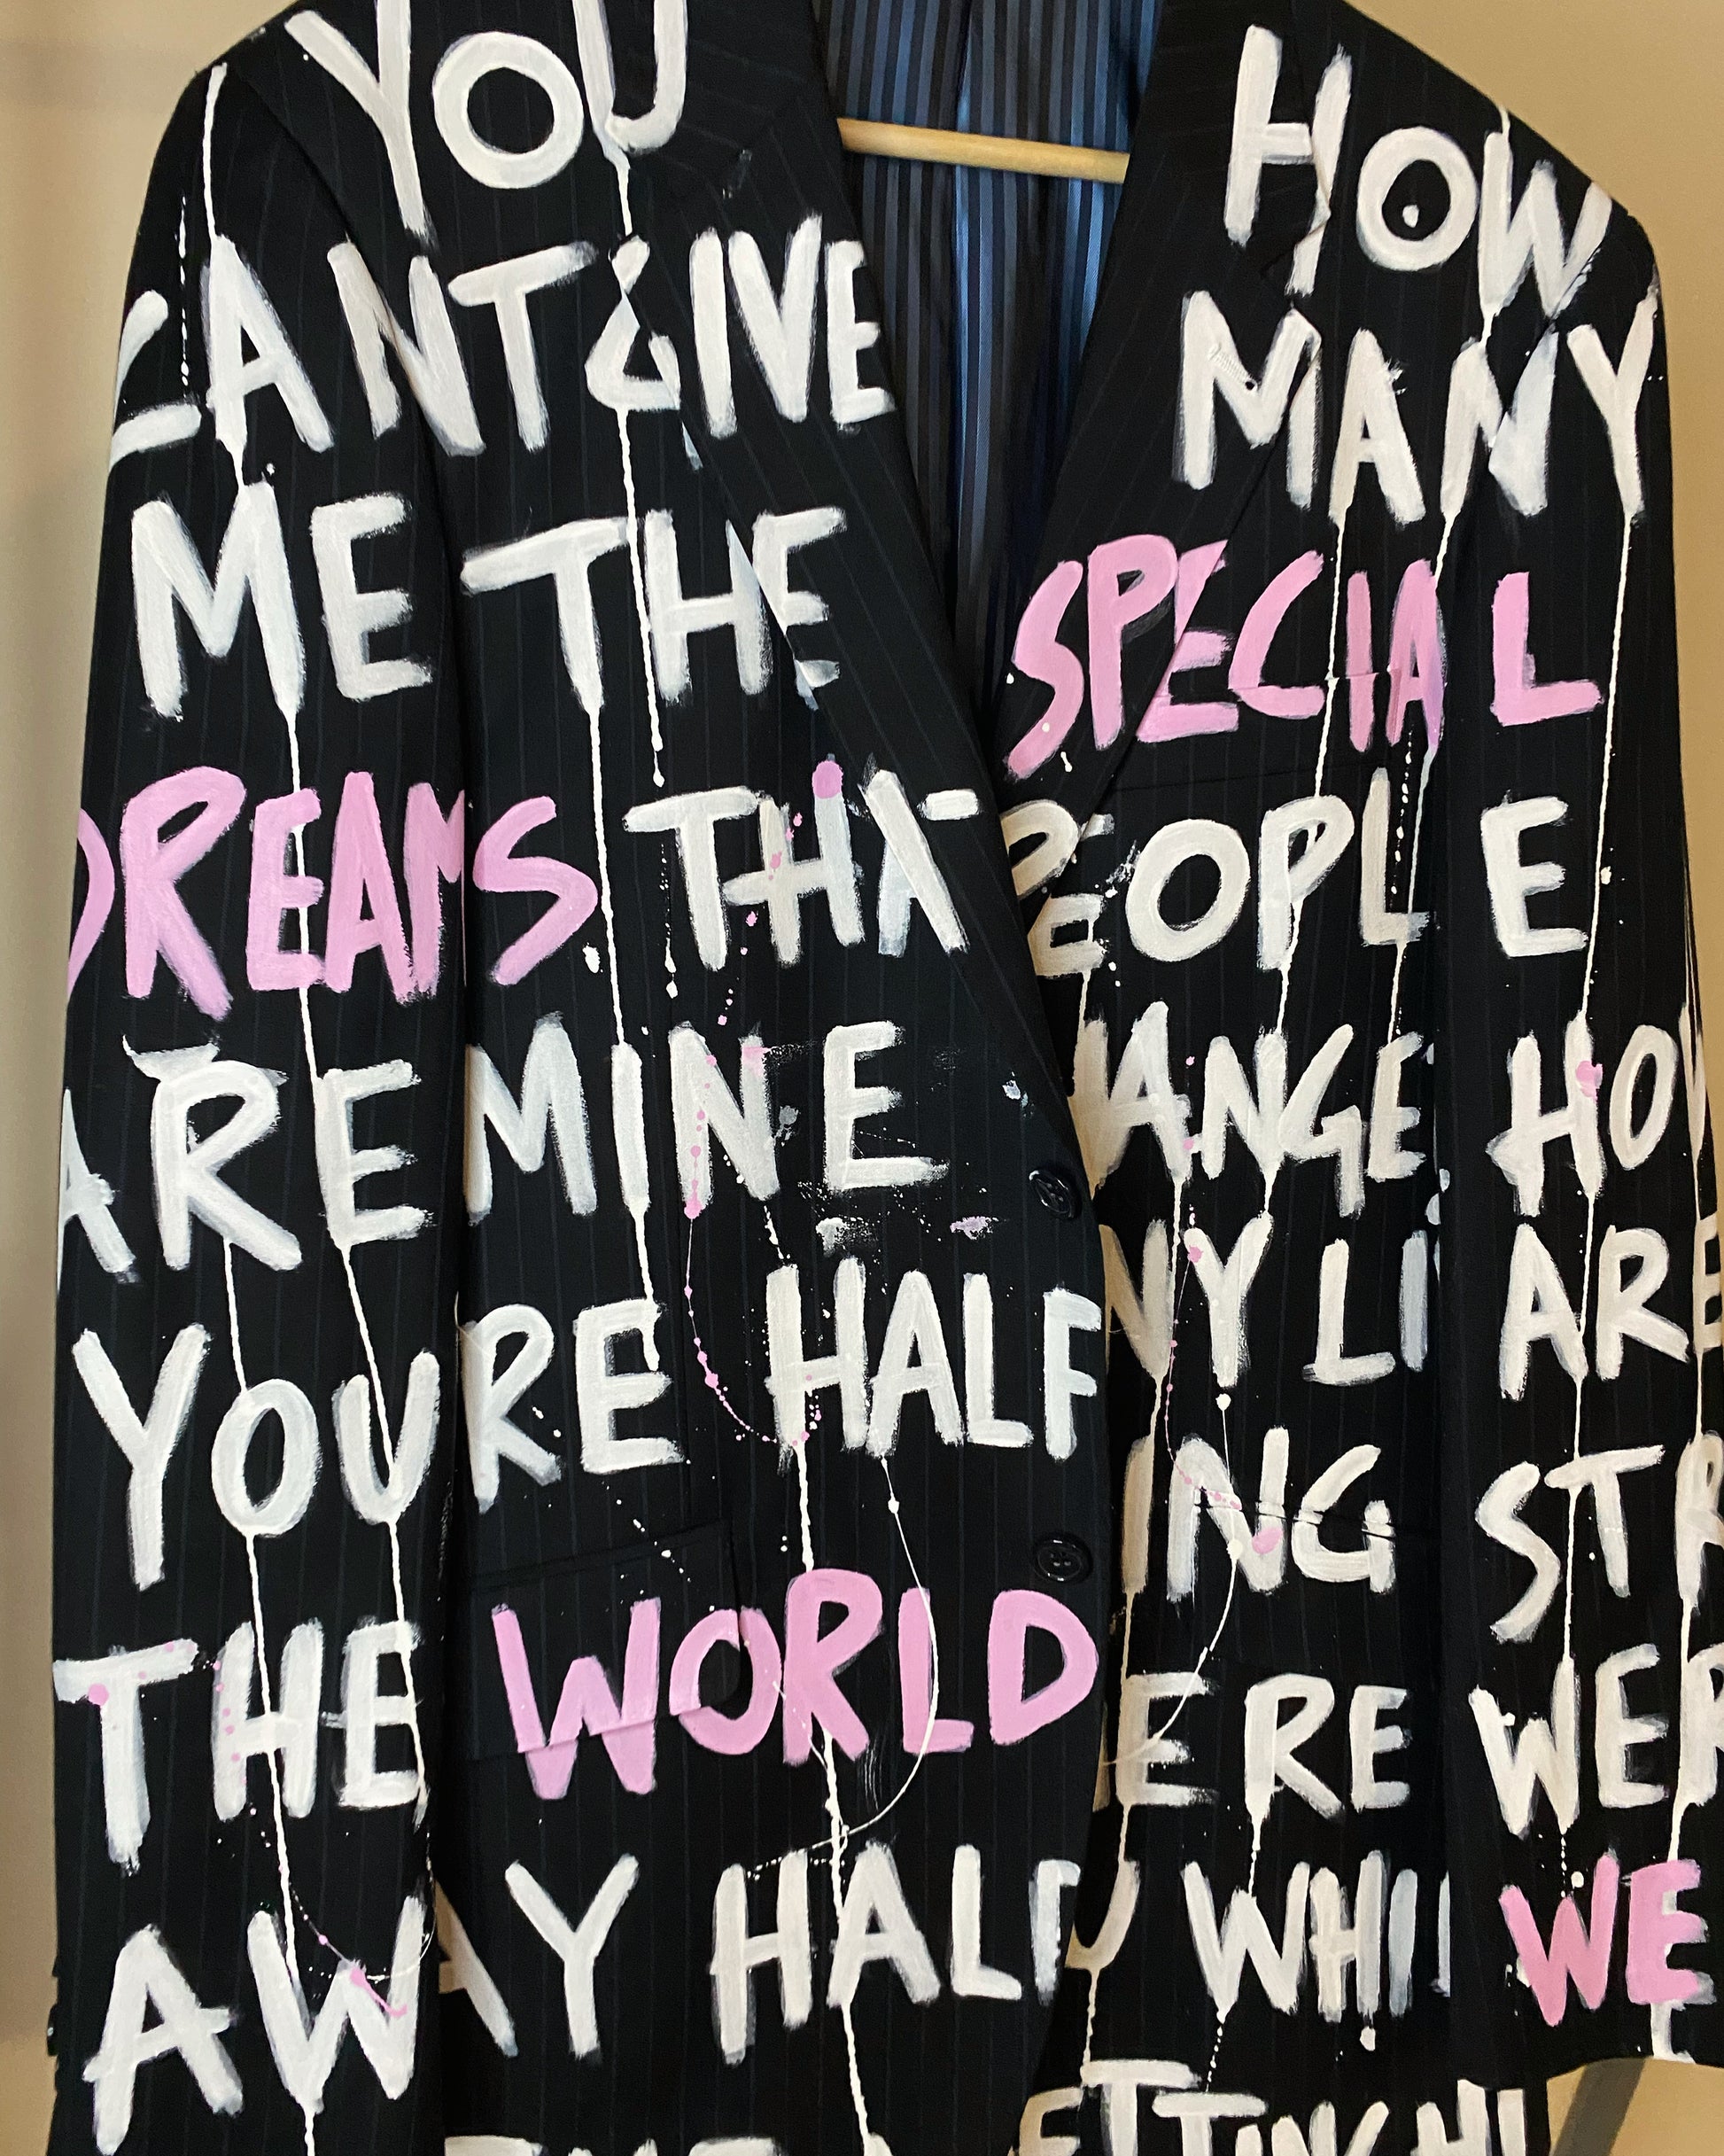 YOU
CANT GIVE
ME THE
DREAMS THAT
ARE MINE
YOURE HALF
THE WORLD
AWAY HALF
HOW
MANY
SPECIAL
PEOPLE
ANGE HOW
NY LI ARE
ING STR
ERE WER
U WHI WE
ETTING HI